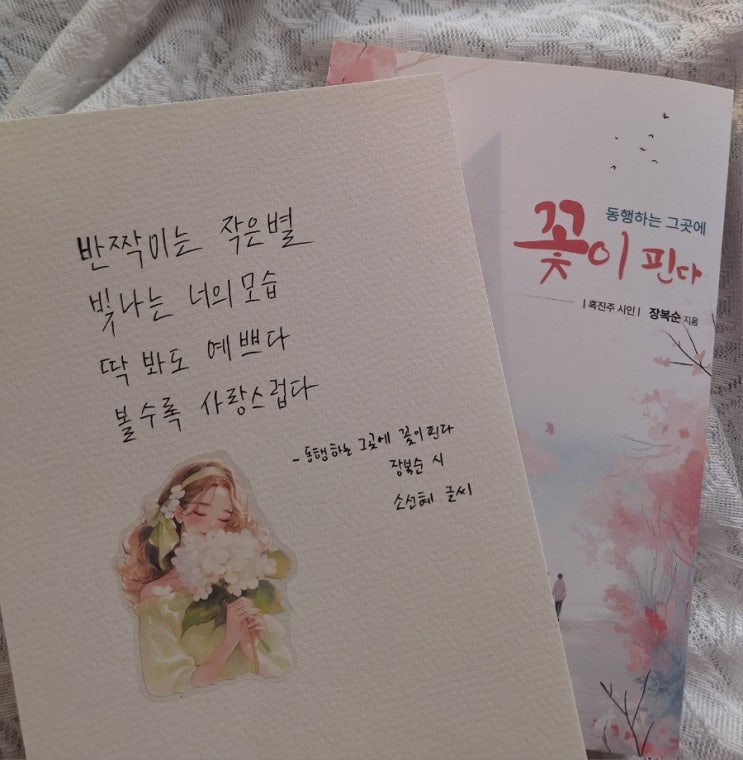 반짝이는 작은별
빛나는 너의 모습
딱 봐도 예쁘다
볼수록 사랑스럽다
- 동행하는 그곳에 꽃이 핀다
장복순 시
소선혜 글씨
동행하는 그곳에
꽃이 핀다
| 흑진주 시인 | 장복순 지음